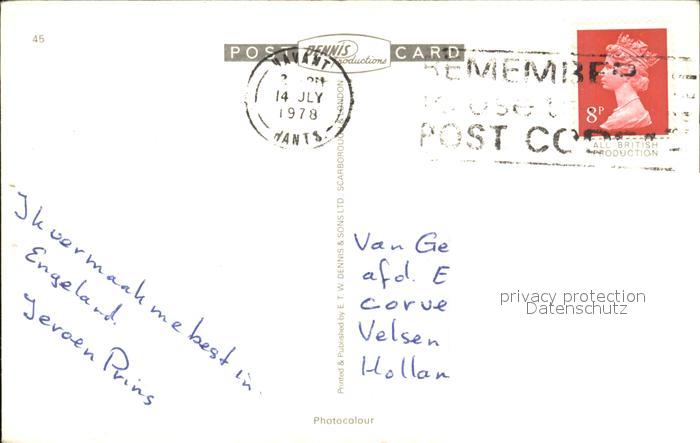 45
POST DENNIS Productions CARD
HAVANT
14 JLY
1978
HANTS
REMEMBER
to use the
POST CODE
8P
ALL BRITISH
PRODUCTION
Ik vermaak me best in
Engeland.
Jeroen Prins
Printed & Published by E. T. W. DENNIS & SONS LTD. SCARBOROUGH & LONDON
Van Ge
afd. E
corve
Velsen
Hollan
privacy protection
Datenschutz
Photocolour